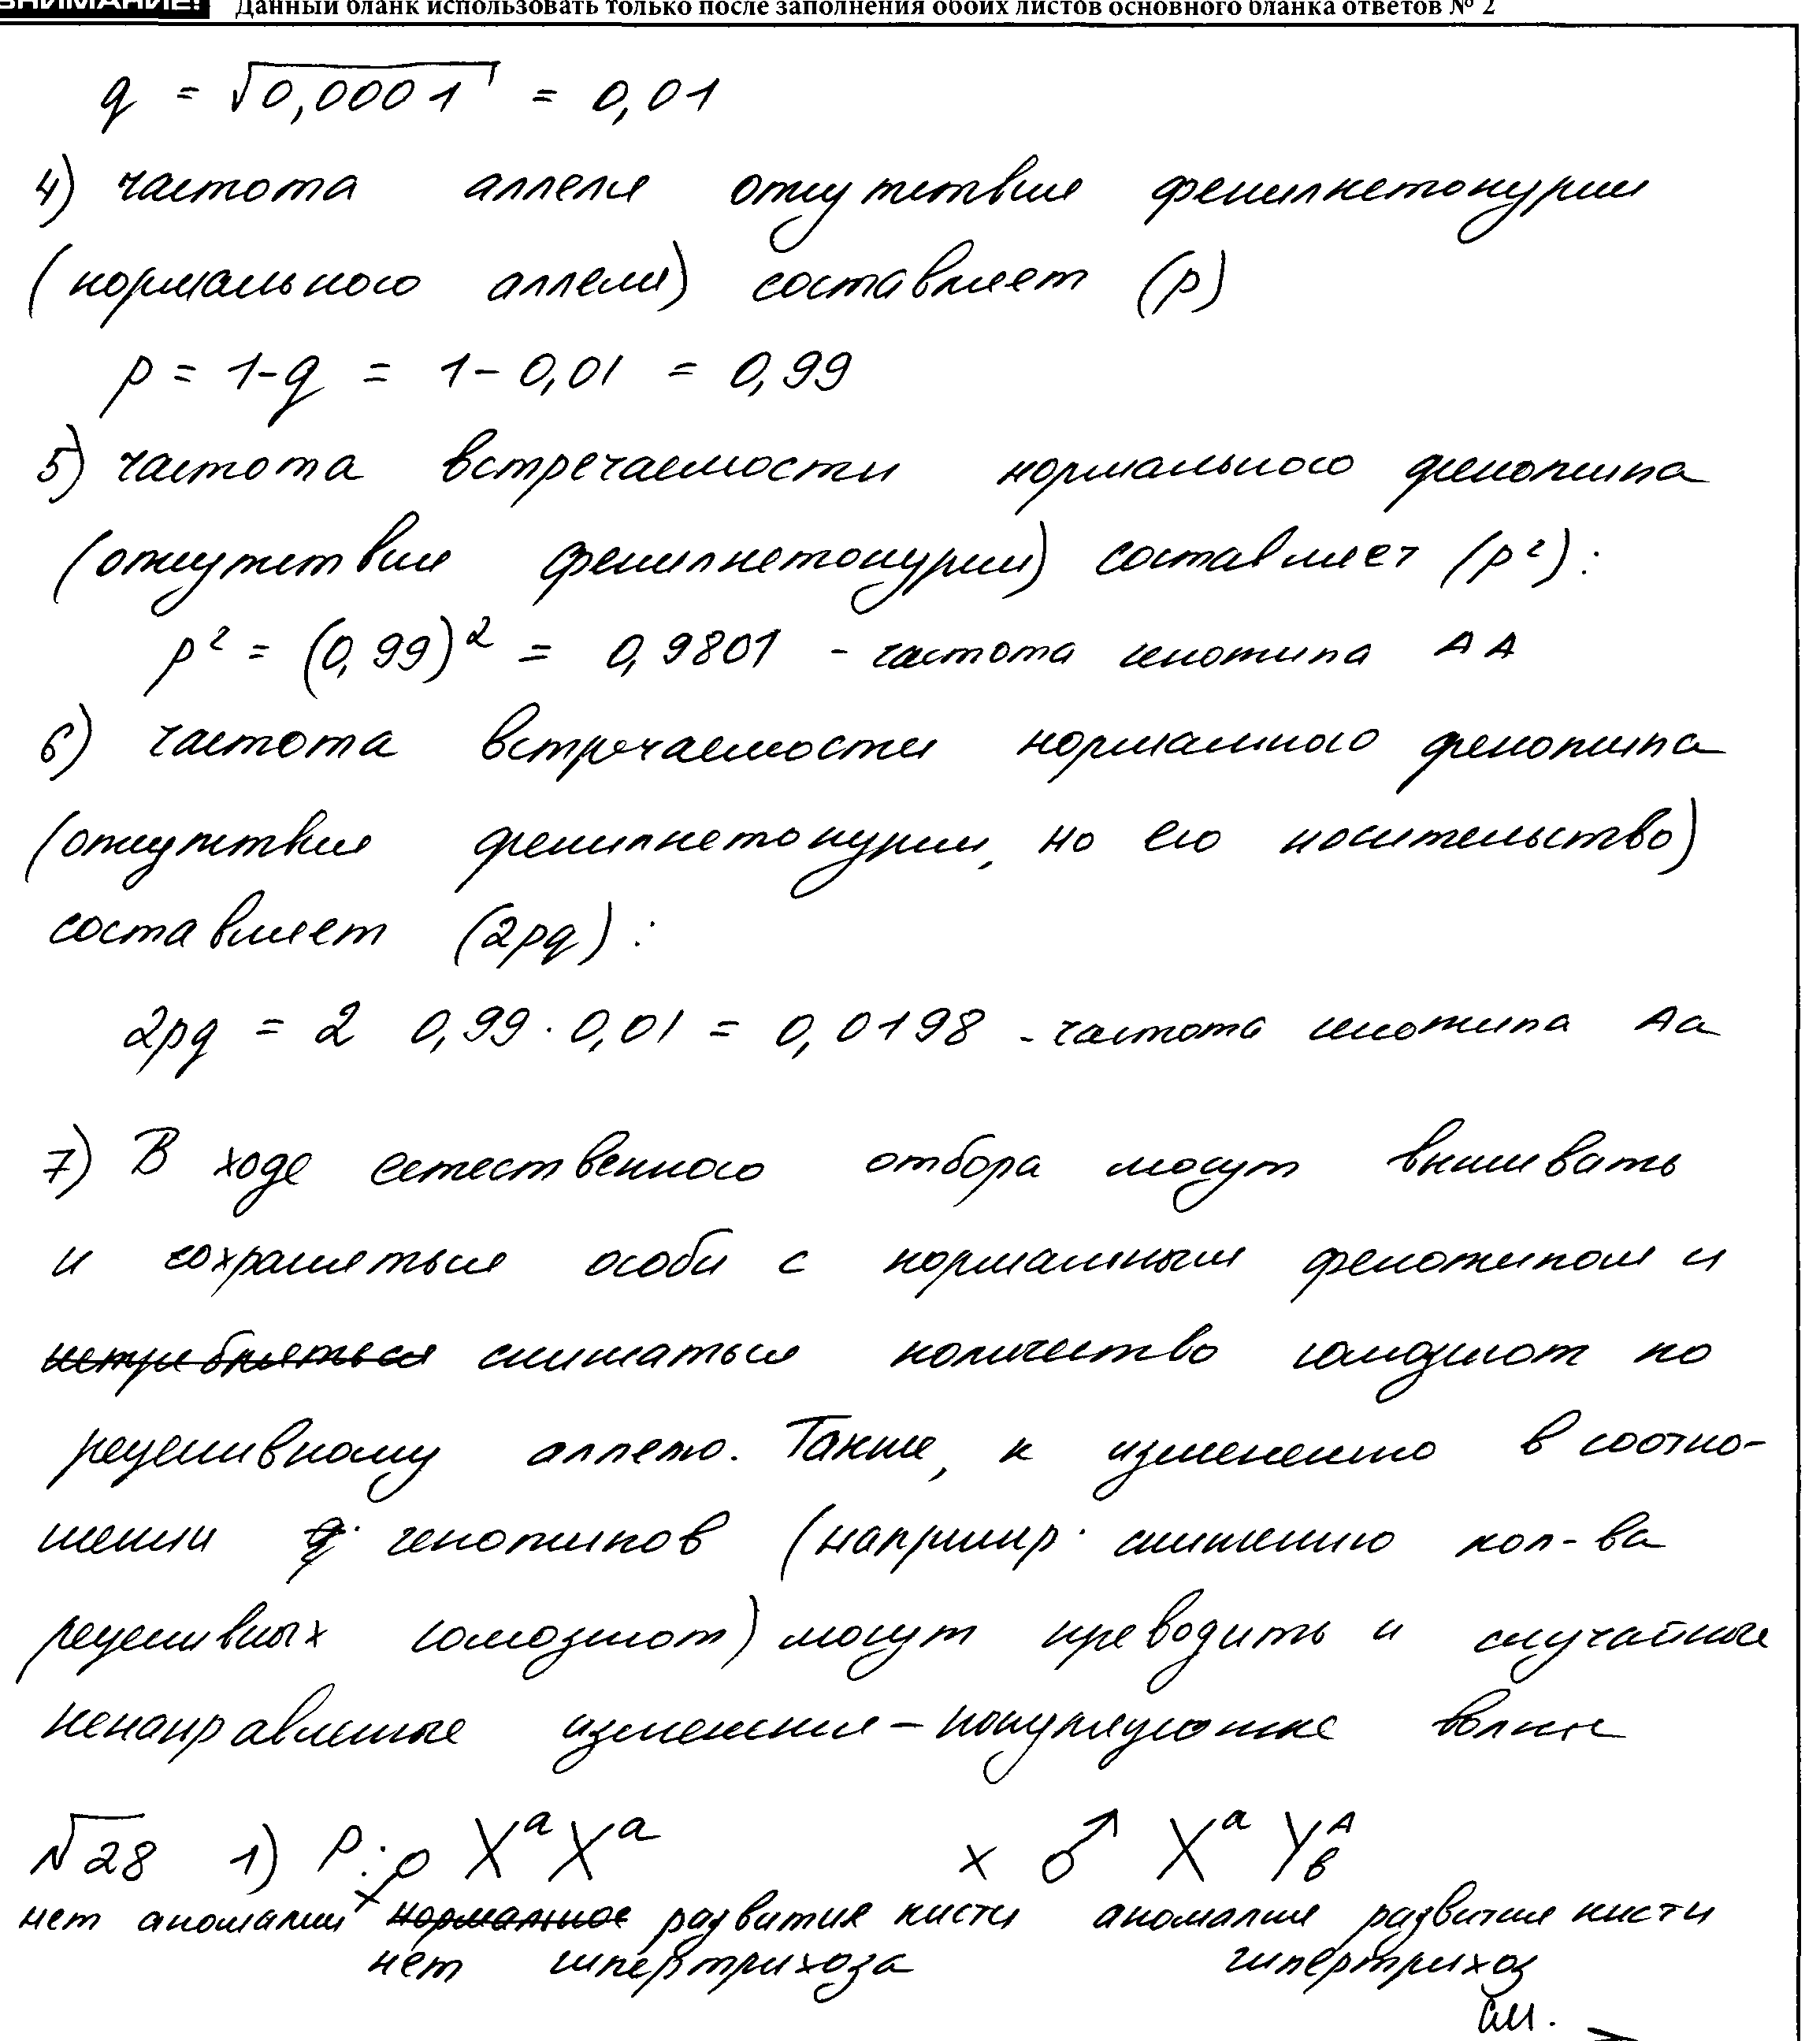 ВНИМАНИЕ! Данный бланк использовать только после заполнения обоих листов основного бланка ответов № 2
q = √0,0001 = 0,01
4) частота аллеля отсутствия фенилкетонурии
(нормального аллеля) составляет (p)
p = 1-q = 1 - 0,01 = 0,99
5) частота встречаемости нормального фенотипа
(отсутствия фенилкетонурии) составляет (p²):
p² = (0,99)² = 0,9801 - частота генотипа АА
6) частота встречаемости нормального фенотипа
(отсутствия фенилкетонурии, но его носительство)
составляет (2pq):
2pq = 2 0,99 · 0,01 = 0,0198 - частота генотипа Аа
7) В ходе естественного отбора могут выживать
и сохраняться особи с нормальным фенотипом и
снижаться количество гомозигот по
рецессивному аллелю. Также, к изменению в соотно-
шении генотипов (например: снижению кол-ва
рецессивных гомозигот) могут преводить и случайные
ненаправленные изменения - популяционные волны
√28 1) P: ♀ XᵃXᵃ x ♂ Xᵃ Yᴬв
нет аномалии нормальное развития кисти аномалия развития кисти
нет гипертрихоза гипертрихоз
см. →